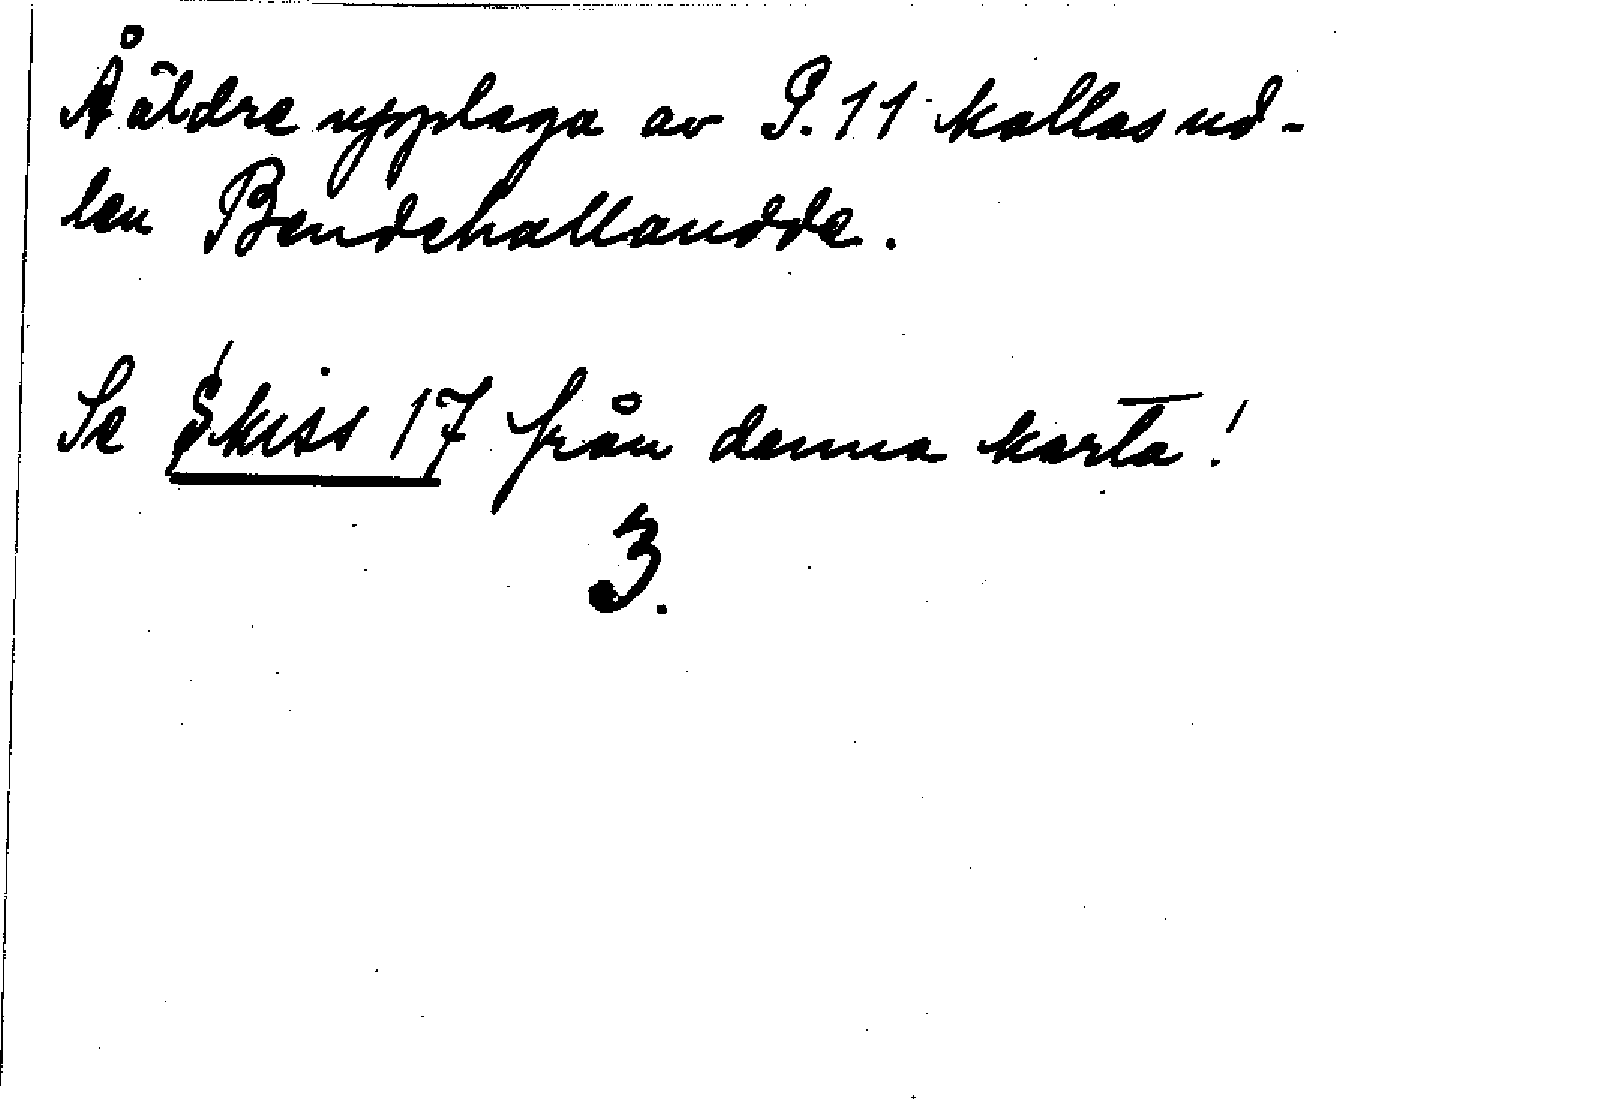 Å äldre upplaga av S. 11 kallas ud-
den Bendehallaudde.
Se Skiss 17 från denna karta!
3.